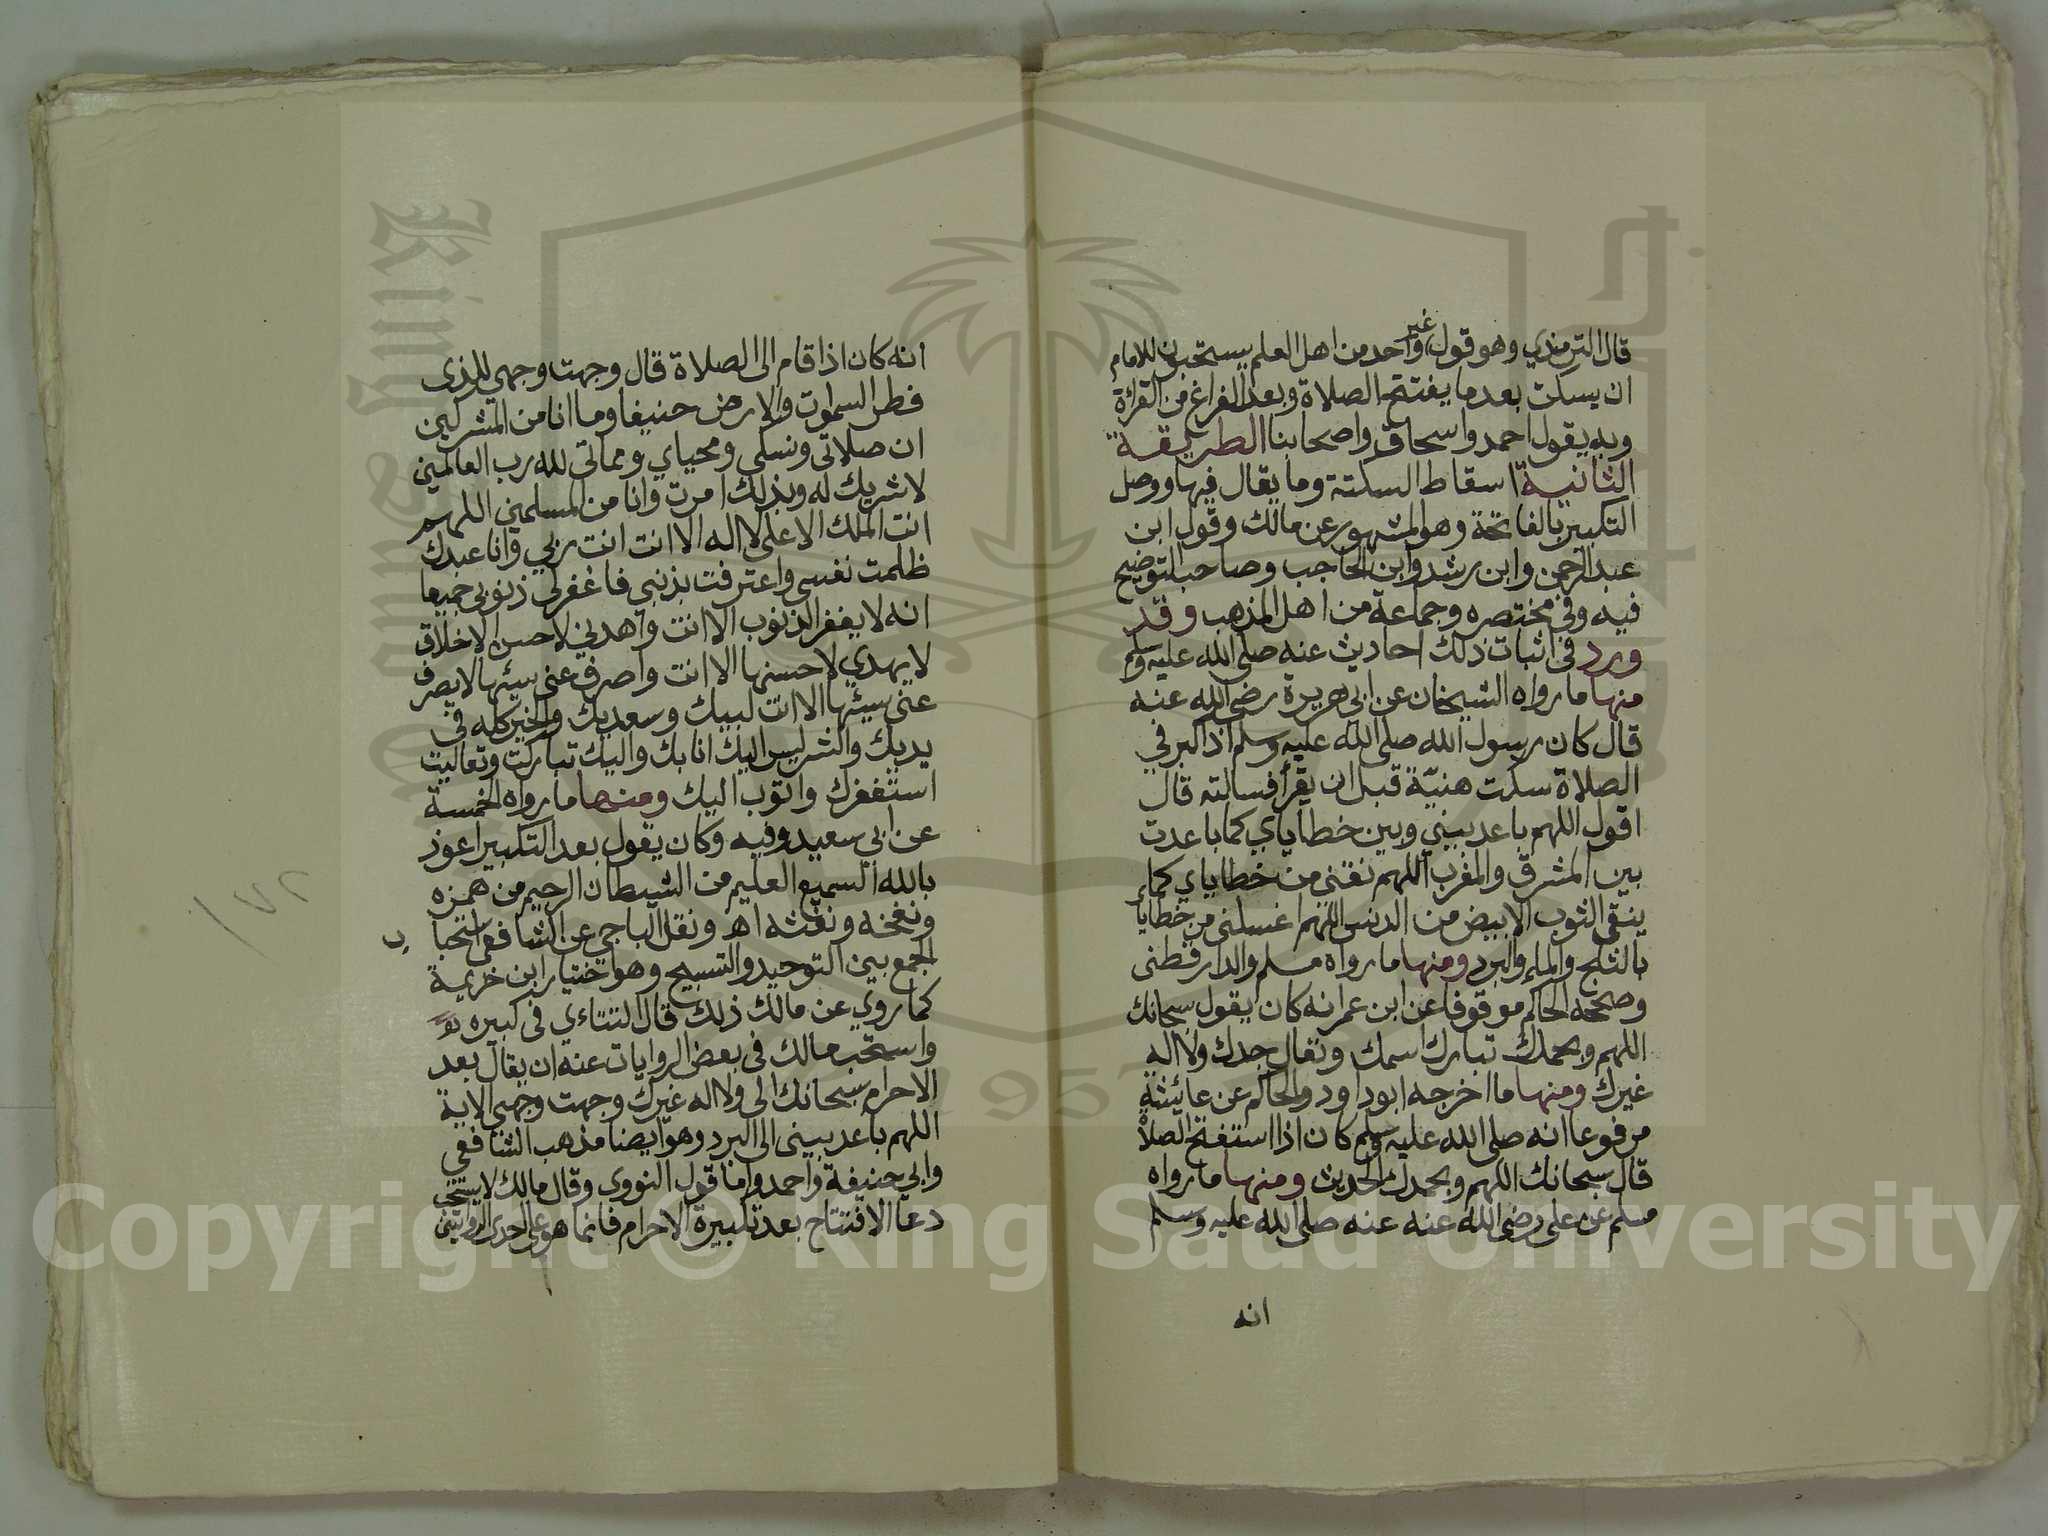 قال الترمذي وهو قول غير واحد من اهل العلم يستحبون للامام
ان يسكت بعد ما يفتتح الصلاة وبعد الفراغ من القرأة
وبه يقول احمد واسحاق واصحابنا الطريقة
الثانية اسقاط السكتة وما يقال فيها ووصل
التكبير بالفاتحة وهو المشهور عن مالك وقول ابن
عبد الرحمن وابن رشد وابن الحاجب وصاحب التوضيح
فيه وفي مختصره وجماعة من اهل المذهب وقد
ورد في اثبات ذلك احاديث عنه صلى الله عليه وسلم
منها ما رواه الشيخان عن ابي هريرة رضي الله عنه
قال كان رسول الله صلى الله عليه وسلم اذا كبر في
الصلاة سكت هنيّة قبل ان يقرأ فسالته قال
اقول اللهم باعد بيني وبين خطاياي كما باعدت
بين المشرق والمغرب اللهم نقني من خطاياي كما
ينقى الثوب الابيض من الدنس اللهم اغسلني من خطاياي
بالثلج والماء والبرد ومنها ما رواه مسلم والدارقطني
وصححه الحاكم موقوفا عن ابن عمر انه كان يقول سبحانك
اللهم وبحمدك تبارك اسمك وتعال جدك ولا اله
غيرك ومنها ما اخرجه ابو داود والحاكم عن عائشة
مرفوعا انه صلى الله عليه وسلم كان اذا استفتح الصلاة
قال سبحانك اللهم وبحمدك الحديث ومنها ما رواه
مسلم عن علي رضي الله عنه عنه صلى الله عليه وسلم
انه
انه كان اذا قام الى الصلاة قال وجهت وجهي للذى
فطر السموات والارض حنيفا وما انا من المشركين
ان صلاتى ونسكي ومحياي ومماتى لله رب العالمين
لا شريك له وبذلك امرت وانا من المسلمين اللهم
انت الملك الاعلى لا اله الا انت انت ربي وانا عبدك
ظلمت نفسي واعترفت بذنبي فاغفر لي ذنوبي جميعا
انه لا يغفر الذنوب الا انت واهدني لاحسن الاخلاق
لا يهدي لاحسنها الا انت واصرف عني سيئها لا يصرف
عني سيئها الا انت لبيك وسعديك والخير كله في
يديك والشر ليس اليك انا بك واليك تباركت وتعاليت
استغفرك واتوب اليك ومنها ما رواه الخمسة
عن ابي سعيد وفيه وكان يقول بعد التكبير اعوذ
بالله السميع العليم من الشيطان الرجيم من همزه
ونفخه ونفثه اهـ ونقل الباجي عن الشافعي استحباب
الجمع بين التوحيد والتسبيح وهو اختيار ابن خزيمة
كما روي عن مالك ذلك قال التتاءي في كبيره
واستحب مالك في بعض الروايات عنه ان يقال بعد
الاحرام سبحانك الى ولا اله غيرك وجهت وجهي الاية
اللهم باعد بيني الى البرد وهو ايضا مذهب الشافعي
وابي حنيفة واحمد واما قول النووي وقال مالك لا يستحب
دعا الافتتاح بعد تكبيرة الاحرام فانما هو على احدى الروايتين
١٧٢
King Saud University
1957
Copyright © King Saud University